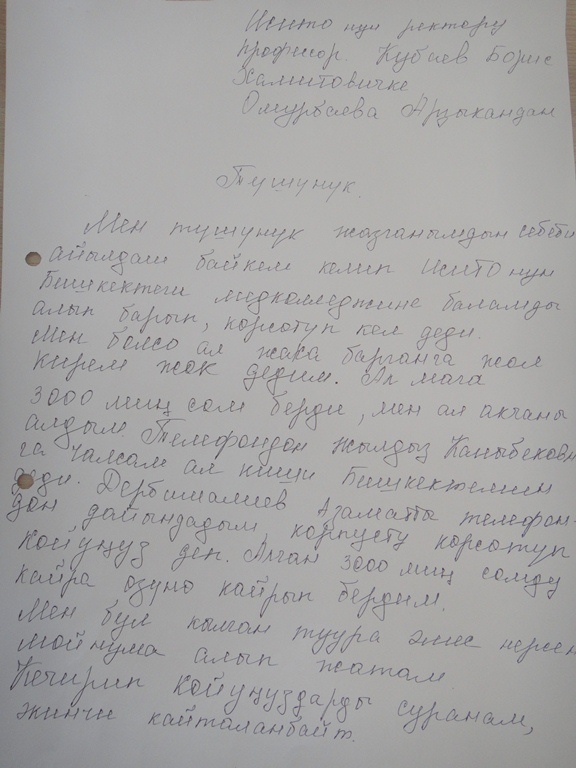 Исито нун ректору
профессор. Кубаев Борис
Хамитовичке
Омурбаева Арзыкандан
Тушунук.
Мен тушунук жазганымдын себеби
айылдаш байкем келип ИСИТО нун
Бишкектеги медколледжине баламды
алып барып, корсотуп кел деди.
Мен болсо ал жака барганга жол
кирем жок дедим. Ал мага
3000 миң сом берди, мен ал акчаны
алдым. Телефондон Жылдыз Каныбековна
га чалсам ал киши Бишкектемин
деди. Дербишалиев Азаматты телефон-
дон дайындадым, корпусту корсотуп
койуңуз деп. Алган 3000 миң сомду
кайра озуно кайрып бердим.
Мен бул кылган туура эмес нерсени
мойнума алып жатам
Кечирип койуңуздарды суранам,
экинчи кайталанбайт.